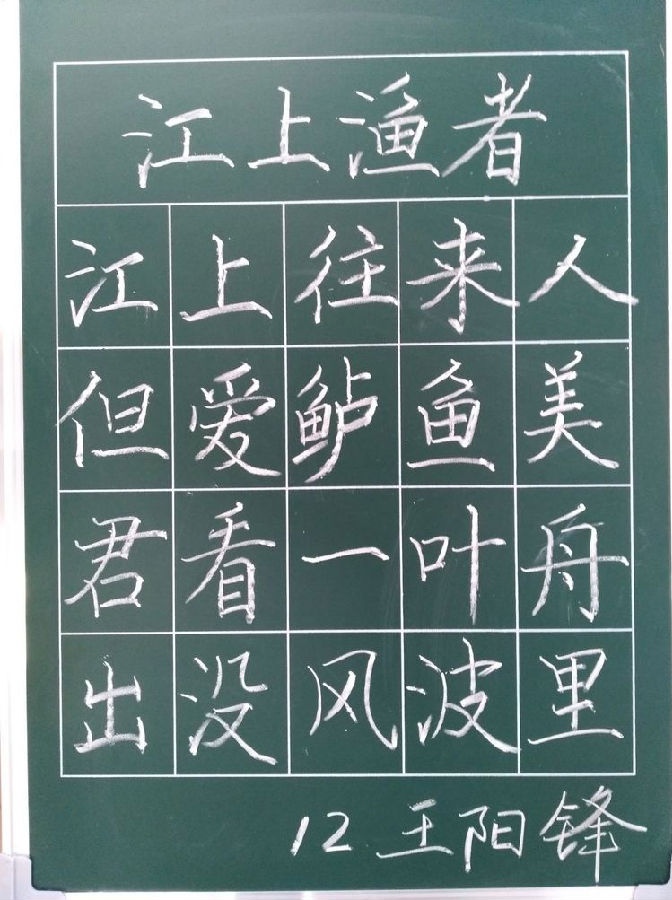 江上渔者
江上往来人
但爱鲈鱼美
君看一叶舟
出没风波里
12 王阳锋